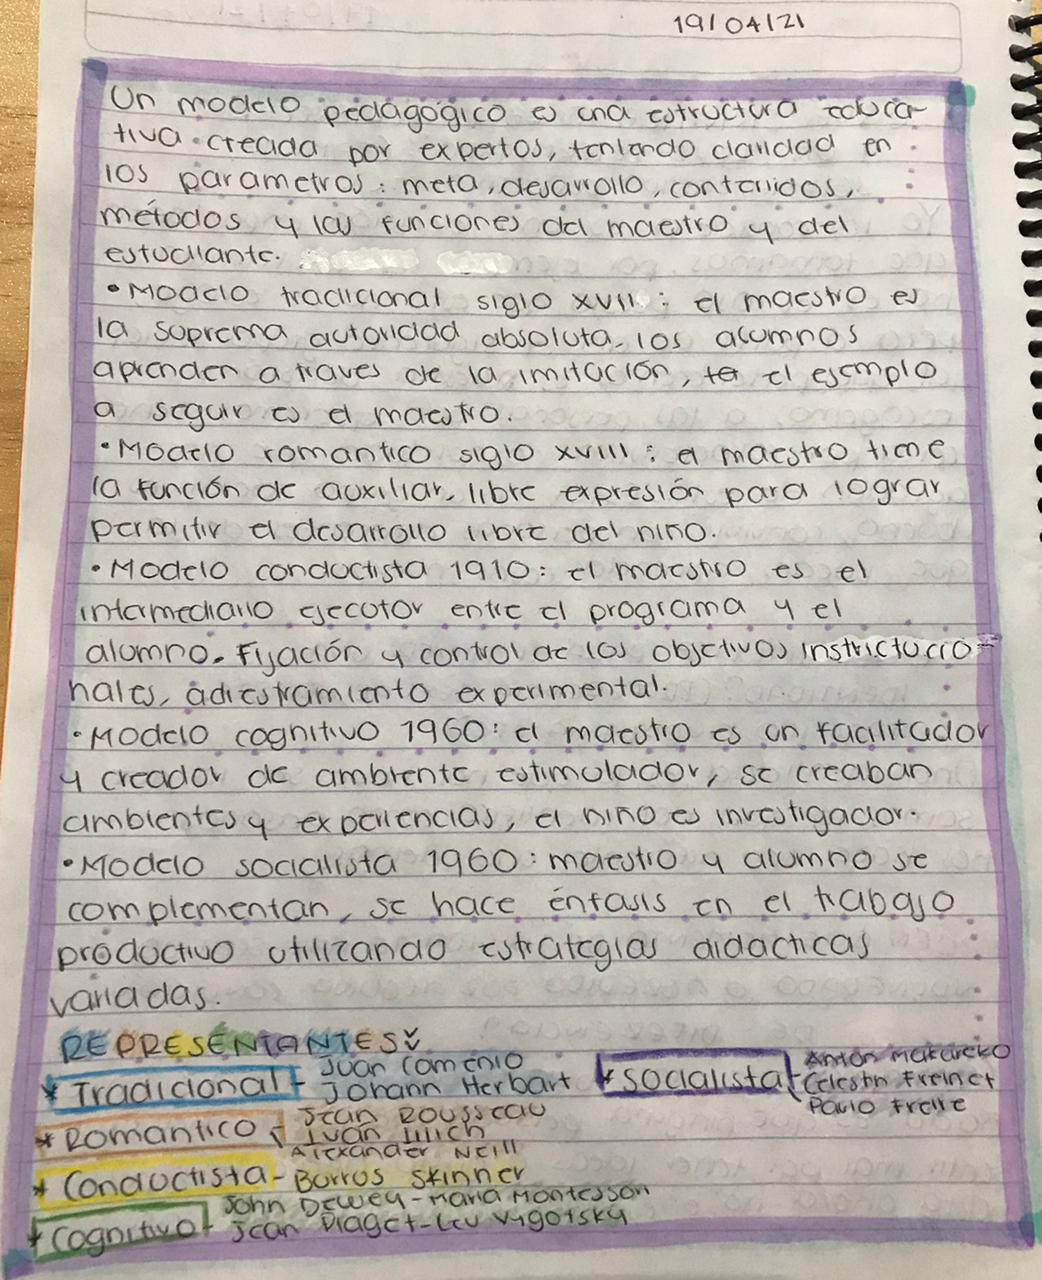 19/04/21
Un modelo pedagógico es una estructura educa-
tiva creada por expertos, teniendo claridad en
los parametros: meta, desarrollo, contenidos,
métodos y las funciones del maestro y del
estudiante.
• Modelo tradicional siglo XVII : el maestro es
la suprema autoridad absoluta, los alumnos
aprenden a traves de la imitación, el ejemplo
a seguir es el maestro.
• Modelo romantico siglo XVIII : el maestro tiene
la función de auxiliar, libre expresión para lograr
permitir el desarrollo libre del niño.
• Modelo conductista 1910: el maestro es el
intermediario ejecutor entre el programa y el
alumno. Fijación y control de los objetivos instructucio-
nales, adiestramiento experimental.
• Modelo cognitivo 1960: el maestro es un facilitador
y creador de ambiente estimulador, se creaban
ambientes y experiencias, el niño es investigador.
• Modelo socialista 1960: maestro y alumno se
complementan, se hace énfasis en el trabajo
productivo utilizando estrategias didacticas
variadas.
REPRESENTANTES
* Tradicional - Juan Comenio
Johann Herbart
* Romantico Jean Rousseau
Ivan Illich
Alexander Neill
* Conductista - Burros Skinner
* Cognitivo - John Dewey - Maria Montessori
Jean Piaget - Lev Vygotsky
* Socialista Anton Makareko
Celestin Freinet
Paulo Freire